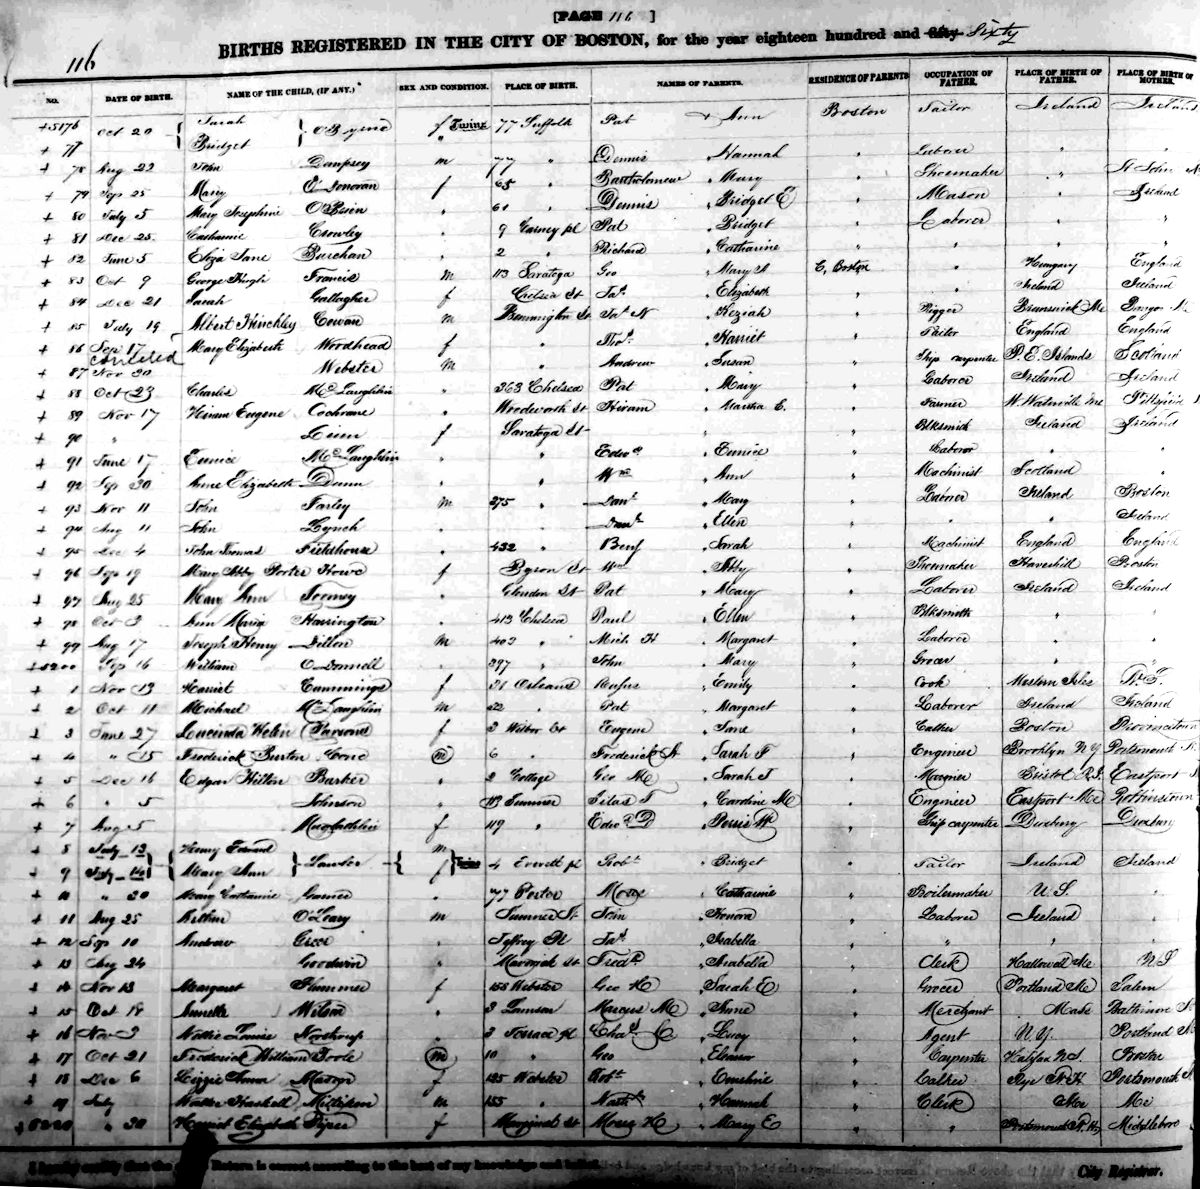 [PAGE 116 ]
116
BIRTHS REGISTERED IN THE CITY OF BOSTON, for the year eighteen hundred and fifty Sixty
NO. DATE OF BIRTH. NAME OF THE CHILD, (IF ANY.) SEX AND CONDITION. PLACE OF BIRTH. NAMES OF PARENTS. RESIDENCE OF PARENTS OCCUPATION OF FATHER. PLACE OF BIRTH OF FATHER. PLACE OF BIRTH OF MOTHER.
+5176 Oct 20 { Sarah } f Twins 77 Suffolk Pat & Ann Boston Tailor Ireland Ireland
+ 77 Bridget "
+ 78 Aug 22 John Dempsey m 77 " Dennis " Hannah " Laborer " "
+ 79 Sep 25 Mary O'Donovan f 65 " Bartholomew " Mary " Shoemaker " " St John
+ 80 July 5 Mary Josephine O'Brien " 61 " Dennis " Bridget E " Mason " Ireland
+ 81 Dec 25 Catharine Crowley " 9 pl Pat " Bridget " Laborer " "
+ 82 June 5 Eliza Jane " 2 " Richard " Catharine " " " "
+ 83 Oct 9 George Hugh Francis m 113 Saratoga Geo " Mary A E. Boston " Hungary England
+ 84 Dec 21 Sarah Gallagher f Chelsea St Jas " Elizabeth " " Ireland Ireland
+ 85 July 19 Albert Hinckley Cowan m Bennington St Jas N " Keziah " Rigger Brunswick Me Bangor
+ 86 Sep 17 Mary Elizabeth Woodhead f " Thos " Harriet " Tailor England England
+ 87 Nov 30 Webster m " Andrew " Susan " Ship carpenter P. E. Islands Scotland
+ 88 Oct 23 Charles McLaughlin " 363 Chelsea Pat " Mary " Laborer Ireland Ireland
+ 89 Nov 17 Hiram Eugene Cochrane " Woodworth St Hiram " Martha E. " Farmer W. Waterville Me
+ 90 " f Saratoga St " " " Blksmith Ireland Ireland
+ 91 June 17 Eunice McLaughlin " " Edwd " Eunice " Laborer " "
+ 92 Sep 30 Anne Elizabeth Dunn " " Wm " Ann " Machinist Scotland "
+ 93 Nov 11 John Farley m 275 " Danl " Mary " Laborer Ireland Boston
+ 94 Aug 11 John Lynch " " Danl " Ellen " " " Ireland
+ 95 Dec 4 John Thomas Fieldhouse " 432 " Benj " Sarah " Machinist England England
+ 96 Sep 19 Mary Abby Porter Howe f Byron St Wm " Abby " Shoemaker Haverhill Boston
+ 97 Aug 25 Mary Ann Toomey " Glendon St Pat " Mary " Laborer Ireland Ireland
+ 98 Oct 3 Ann Maria Harrington " 413 Chelsea Paul " Ellen " Blksmith " "
+ 99 Aug 17 Joseph Henry Dillon m 403 " Mich H " Margaret " Laborer " "
+5200 Sep 16 William O'Donnell " 397 " John " Mary " Grocer " "
+ 1 Nov 13 Harriet Cummings f 31 Orleans Rufus " Emily " Cook Western Isles
+ 2 Oct 11 Michael McLaughlin m 22 " Pat " Margaret " Laborer Ireland Ireland
+ 3 June 27 Lucinda Helen Parsons f 3 Wilbur Ct Eugene " Jane " Calker Boston Provincetown
+ 4 " 15 Frederick Burton Cone m 6 " Frederick A " Sarah F " Engineer Brooklyn N Y Portsmouth
+ 5 Dec 16 Edgar Hilton Barker " 2 Cottage Geo M " Sarah J " Mariner Bristol R.I. Eastport
+ 6 " 5 Johnson " 113 Sumner Silas T " Caroline M " Engineer Eastport Me Robbinstown
+ 7 Aug 5 f 119 " Edwd D " Persis W " Ship carpenter Duxbury Duxbury
+ 8 July 13 { Henry Edward } Lawler { m } Twins 4 Everett pl Robt " Bridget " Tailor Ireland Ireland
+ 9 July 14 Mary Ann f
+ 10 " 30 Mary Catharine " 77 Porter Moses " Catharine " Boilermaker U. S. "
+ 11 Aug 25 Arthur O'Leary m Sumner St Tom " Honora " Laborer Ireland "
+ 12 Sep 10 Andrew Greer " Jeffrey St Jas " Isabella " " " "
+ 13 Aug 24 Goodwin " Maverick St Fredk " Arabella " Clerk Hallowell Me N S
+ 14 Nov 13 Margaret Plummer f 155 Webster Geo H " Sarah E " Grocer Portland Me Salem
+ 15 Oct 18 Annette Wilson " 3 Lamson Marcus M " Anne " Merchant Mass Baltimore
+ 16 Nov 3 Hattie Louise Northrup " 3 Terrace pl Chas C " Lucy " Agent N.Y. Portland
+ 17 Oct 21 Frederick William Poole m 10 " Geo " Eleanor " Carpenter Halifax N.S. Boston
+ 18 Dec 6 Lizzie Anna Mason f 125 Webster Robt " Emeline " Calker Rye N.H. Portsmouth
+ 19 July Walter Haskell Milliken m 155 " " Hannah " Clerk Me Me
+5220 " 30 Harriet Elizabeth Piper f Marginal St Moses H " Mary E " " Portsmouth N.H. Middleboro
I hereby certify that the Return is correct according to the best of my knowledge and belief.
City Registrar.